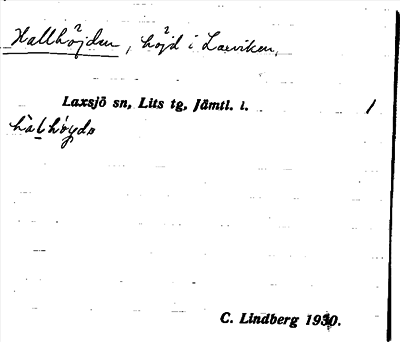 Hallhöjden, höjd i Laxviken,
Laxsjö sn, Lits tg, Jämtl. l.
1
C. Lindberg 1930.